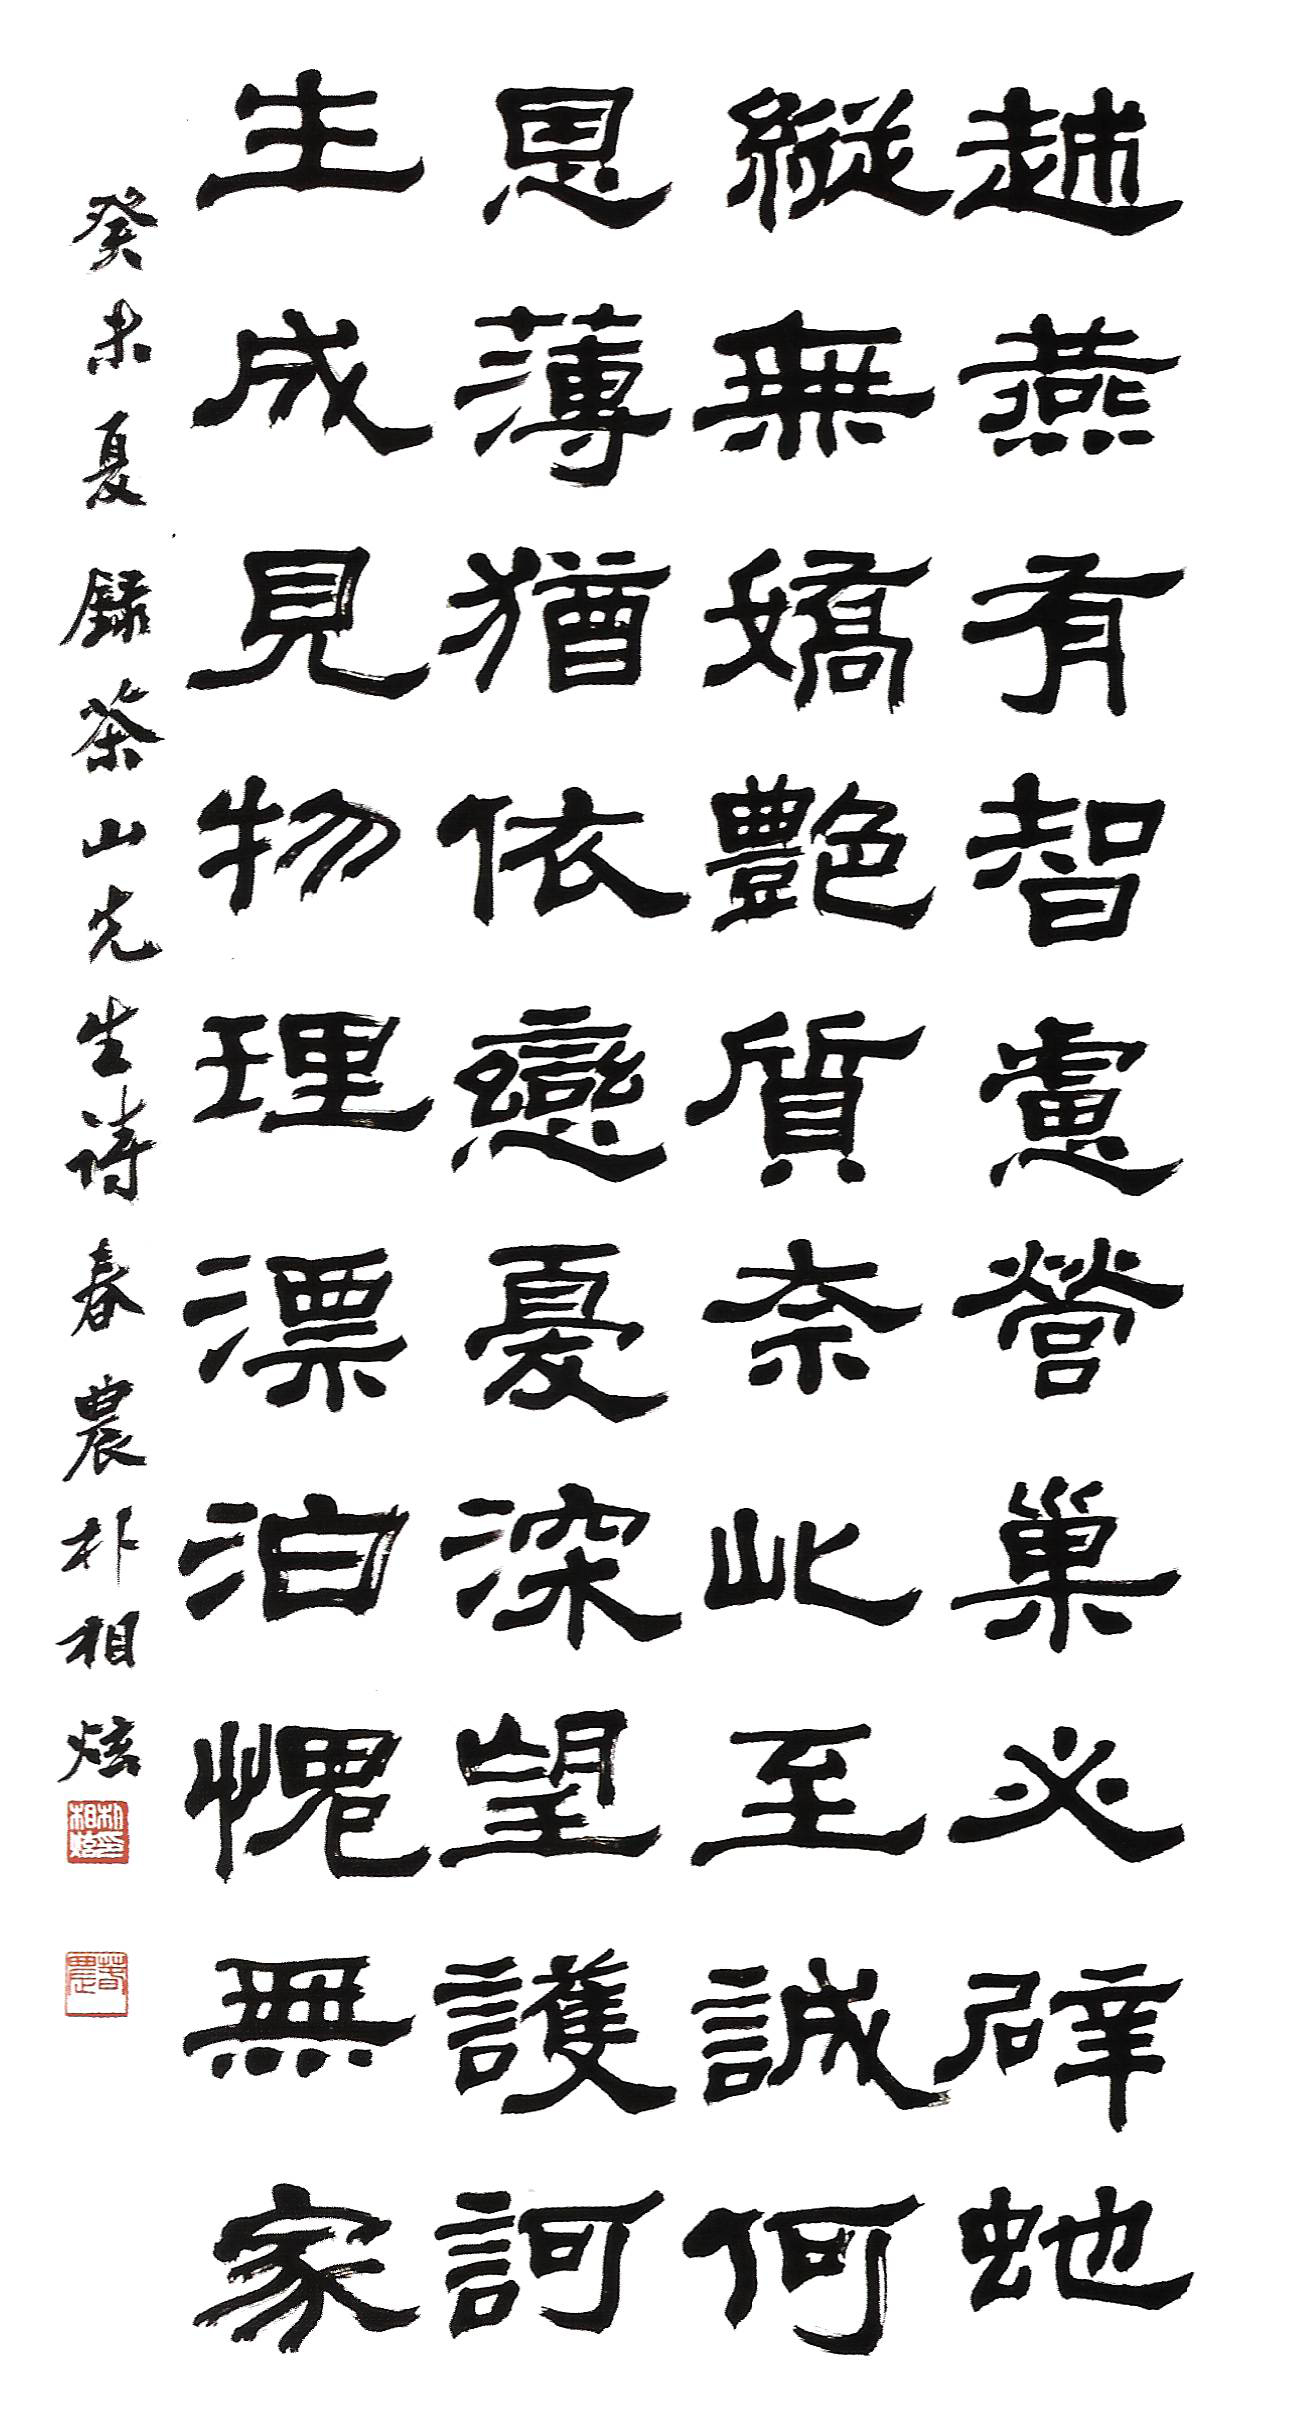 越燕有智慮營巢必辟蛇
縱無嬌艶質奈此至誠何
恩薄猶依戀憂深望護訶
生成見物理漂泊愧無家
癸未夏錄茶山先生詩春農朴相炫
朴相炫印
春農